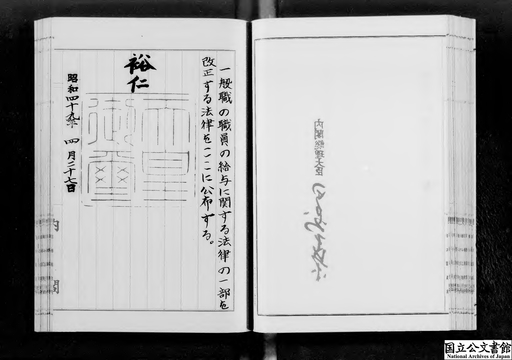 一般職の職員の給与に関する法律の一部を
改正する法律をここに公布する。
裕仁
天皇
御璽
昭和四十九年四月二十七日
内閣
内閣総理大臣
国立公文書館
National Archives of Japan